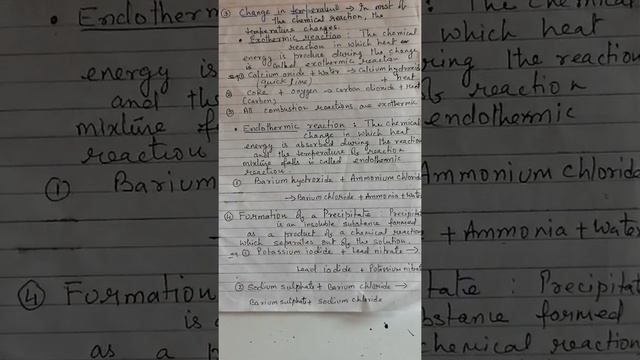 ③ Change in temperature → In most of
the chemical reaction, the
temperature changes.
• Exothermic reaction : The chemical
reaction in which heat
energy is produce during the change
is called exothermic reaction
eg ① Calcium oxide + Water → Calcium hydroxide
(quick lime) + heat
② Coke + oxygen → carbon dioxide + Heat
(Carbon)
③ All combustion reactions are exothermic
• Endothermic reaction : The chemical
change in which heat
energy is absorbed during the reaction
and the temperature of reaction
mixture falls is called endothermic
reaction
① Barium hydroxide + Ammonium chloride
→ Barium chloride + Ammonia + Water
④ Formation of a Precipitate : Precipitate
is an insoluble substance formed
as a product of a chemical reaction
which separates out of the solution.
eg ① Potassium iodide + Lead nitrate →
Lead iodide + Potassium nitrate
② Sodium sulphate + Barium chloride →
Barium sulphate + Sodium chloride
• Endotherm
energy is
and the
mixture f
reaction
① Barium
④ Formation
is
as a p
: The chemical
which heat
ring the reaction
reaction
endothermic
Ammonium chloride
+ Ammonia + Water
tate : Precipitat
bstance formed
chemical reaction